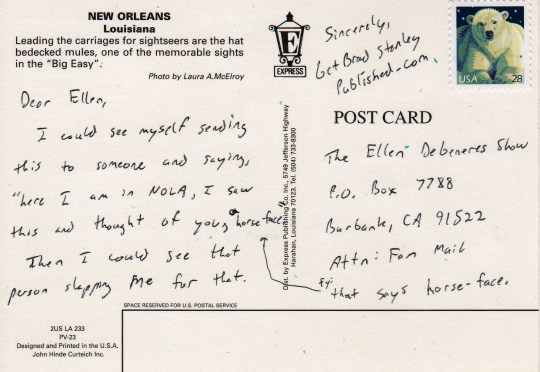 NEW ORLEANS
Louisiana
Leading the carriages for sightseers are the hat
bedecked mules, one of the memorable sights
in the "Big Easy".
Photo by Laura A.McElroy
Dear Ellen,
I could see myself sending
this to someone and saying,
"here I am in NOLA, I saw
this and thought of you, horse-face."
Then I could see that
person slapping me for that.
SPACE RESERVED FOR U.S. POSTAL SERVICE
2US LA 233
PV-23
Designed and Printed in the U.S.A.
John Hinde Curteich Inc.
E
EXPRESS
Dist. by Express Publishing Co. Inc., 5749 Jefferson Highway
Harahan, Louisiana 70123. Tel. (504) 733-8300
Sincerely,
GetBrad Stanley
Published.com.
USA
28
POST CARD
The Ellen Debeneres Show
P.O. Box 7788
Burbank, CA 91522
Attn: Fan Mail
Fyi:
that says horse-face.